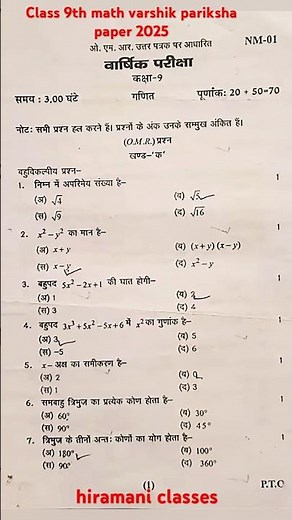 Class 9th math varshik pariksha
paper 2025
ओ. एम. आर. उत्तर पत्रक पर आधारित
NM-01
वार्षिक परीक्षा
कक्षा-9
समय : 3.00 घंटे गणित पूर्णांक: 20 + 50=70
नोट: सभी प्रश्न हल करने हैं। प्रश्नों के अंक उनके सम्मुख अंकित हैं।
(O.M.R.) प्रश्न
खण्ड-'क'
बहुविकल्पीय प्रश्न-
1. निम्न में अपरिमेय संख्या है- 1
(अ) √4 (ब) √5
(स) √9 (द) √16
2. x²-y² का मान है- 1
(अ) x+y (ब) (x+y) (x-y)
(स) x-y (द) x²-y
3. बहुपद 5x²-2x+1 की घात होगी- 1
(अ) 1 (ब) 2
(स) 3 (द) 4
4. बहुपद 3x³+5x²-5x+6 में x² का गुणांक है- 1
(अ) 3 (ब) 5
(स) -5 (द) 6
5. x- अक्ष का समीकरण है- 1
(अ) 2 (ब) 0
(स) 1 (द) 3
6. समबाहु त्रिभुज का प्रत्येक कोण होता है- 1
(अ) 60° (ब) 30°
(स) 90° (द) 45°
7. त्रिभुज के तीनों अन्तः कोणों का योग होता है- 1
(अ) 180° (ब) 100°
(स) 90° (द) 360°
(1) P.T.O
hiramani classes